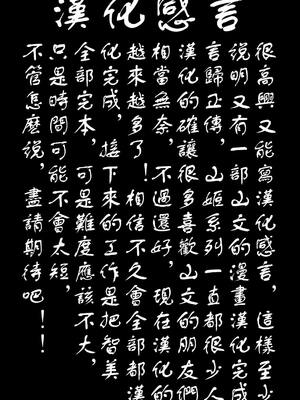 漢化感言
很高興又能寫漢化感言，這樣至少
說明又有一部山文的漫畫漢化完成
言歸正傳，山姬系列一直都很少人
漢化的確讓很多喜歡山文的朋友們
相當無奈，不過還好，現在漢化的
越來越多了！相信不久會全部都漢
化完成，接下來的工作是把智美
全部完本，可是難度應該不大，
只是時間可能不會太短，
不管怎麼說，盡請期待吧！！